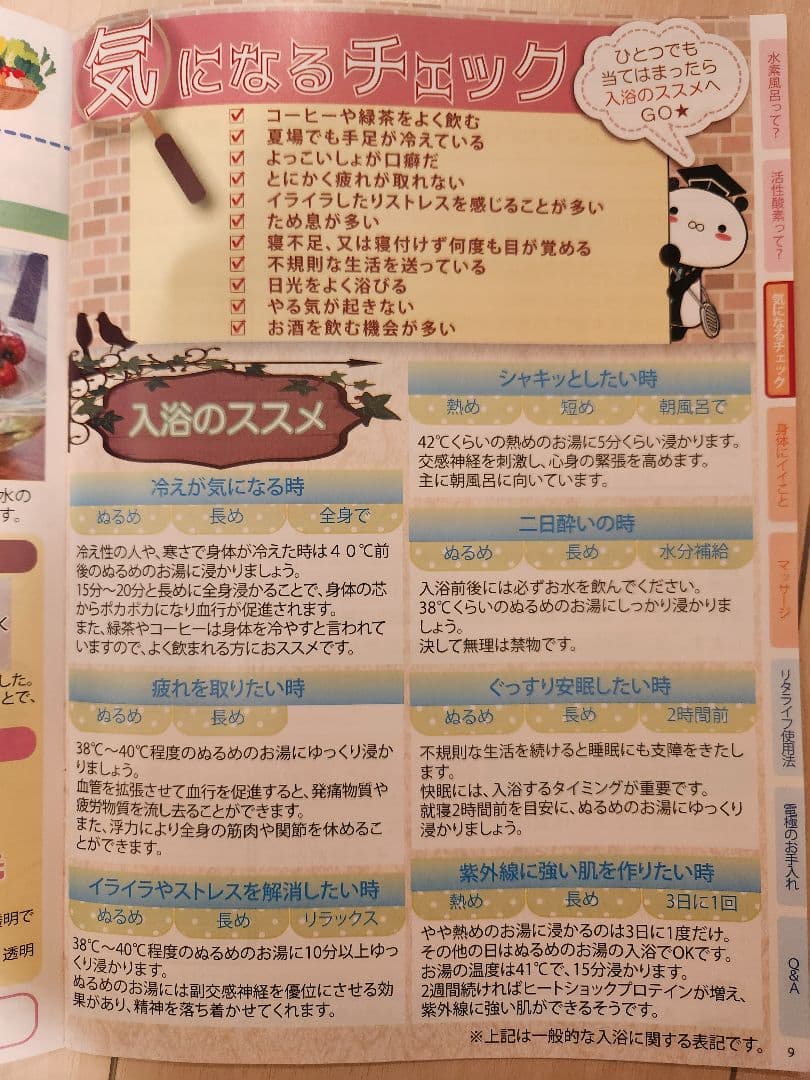 気になるチェック
ひとつでも
当てはまったら
入浴のススメへ
GO★
コーヒーや緑茶をよく飲む
夏場でも手足が冷えている
よっこいしょが口癖だ
とにかく疲れが取れない
イライラしたりストレスを感じることが多い
ため息が多い
寝不足、又は寝付けず何度も目が覚める
不規則な生活を送っている
日光をよく浴びる
やる気が起きない
お酒を飲む機会が多い
入浴のススメ
冷えが気になる時
ぬるめ 長め 全身で
冷え性の人や、寒さで身体が冷えた時は40℃前
後のぬるめのお湯に浸かりましょう。
15分〜20分と長めに全身浸かることで、身体の芯
からポカポカになり血行が促進されます。
また、緑茶やコーヒーは身体を冷やすと言われて
いますので、よく飲まれる方におススメです。
疲れを取りたい時
ぬるめ 長め
38℃〜40℃程度のぬるめのお湯にゆっくり浸か
りましょう。
血管を拡張させて血行を促進すると、発痛物質や
疲労物質を流し去ることができます。
また、浮力により全身の筋肉や関節を休めるこ
とができます。
イライラやストレスを解消したい時
ぬるめ 長め リラックス
38℃〜40℃程度のぬるめのお湯に10分以上ゆっ
くり浸かります。
ぬるめのお湯には副交感神経を優位にさせる効
果があり、精神を落ち着かせてくれます。
シャキッとしたい時
熱め 短め 朝風呂で
42℃くらいの熱めのお湯に5分くらい浸かります。
交感神経を刺激し、心身の緊張を高めます。
主に朝風呂に向いています。
二日酔いの時
ぬるめ 長め 水分補給
入浴前後には必ずお水を飲んでください。
38℃くらいのぬるめのお湯にしっかり浸かりま
しょう。
決して無理は禁物です。
ぐっすり安眠したい時
ぬるめ 長め 2時間前
不規則な生活を続けると睡眠にも支障をきたし
ます。
快眠には、入浴するタイミングが重要です。
就寝2時間前を目安に、ぬるめのお湯にゆっくり
浸かりましょう。
紫外線に強い肌を作りたい時
熱め 長め 3日に1回
やや熱めのお湯に浸かるのは3日に1度だけ。
その他の日はぬるめのお湯の入浴でOKです。
お湯の温度は41℃で、15分浸かります。
2週間続ければヒートショックプロテインが増え、
紫外線に強い肌ができるそうです。
※上記は一般的な入浴に関する表記です。
9
水素風呂って?
活性酸素って?
気になるチェック
身体にイイこと
マッサージ
リタライフ使用法
電極のお手入れ
Q&A
水の
す。
した。
とで、
透明で
透明